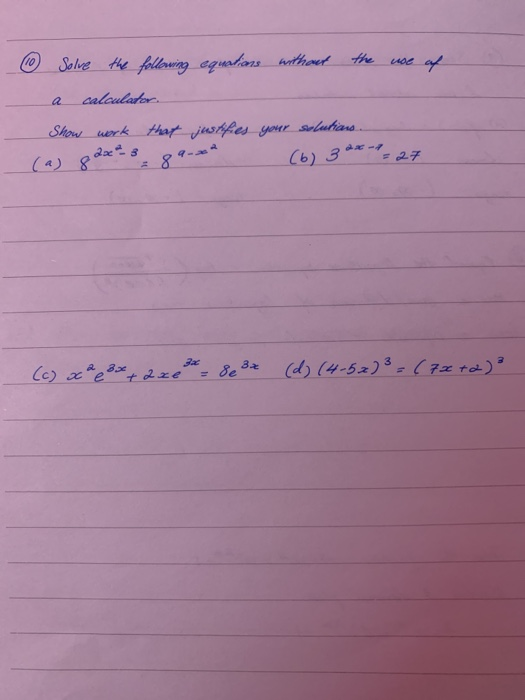 (10) Solve the following equations without the use of
a calculator.
Show work that justifies your solutions.
(a) 8^{2x²-3} = 8^{9-x²} (b) 3^{2x-9} = 27
(c) x²e^{3x} + 2xe^{3x} = 8e^{3x} (d) (4-5x)³ = (7x+2)³